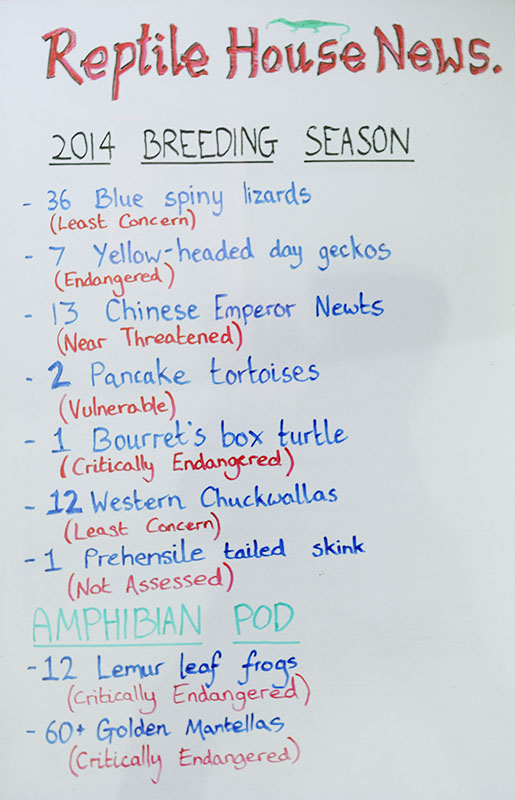 Reptile House News.
2014 BREEDING SEASON
- 36 Blue spiny lizards
(Least Concern)
- 7 Yellow-headed day geckos
(Endangered)
- 13 Chinese Emperor Newts
(Near Threatened)
- 2 Pancake tortoises
(Vulnerable)
- 1 Bourret's box turtle
(Critically Endangered)
- 12 Western Chuckwallas
(Least Concern)
- 1 Prehensile tailed skink
(Not Assessed)
AMPHIBIAN POD
- 12 Lemur leaf frogs
(Critically Endangered)
- 60+ Golden Mantellas
(Critically Endangered)